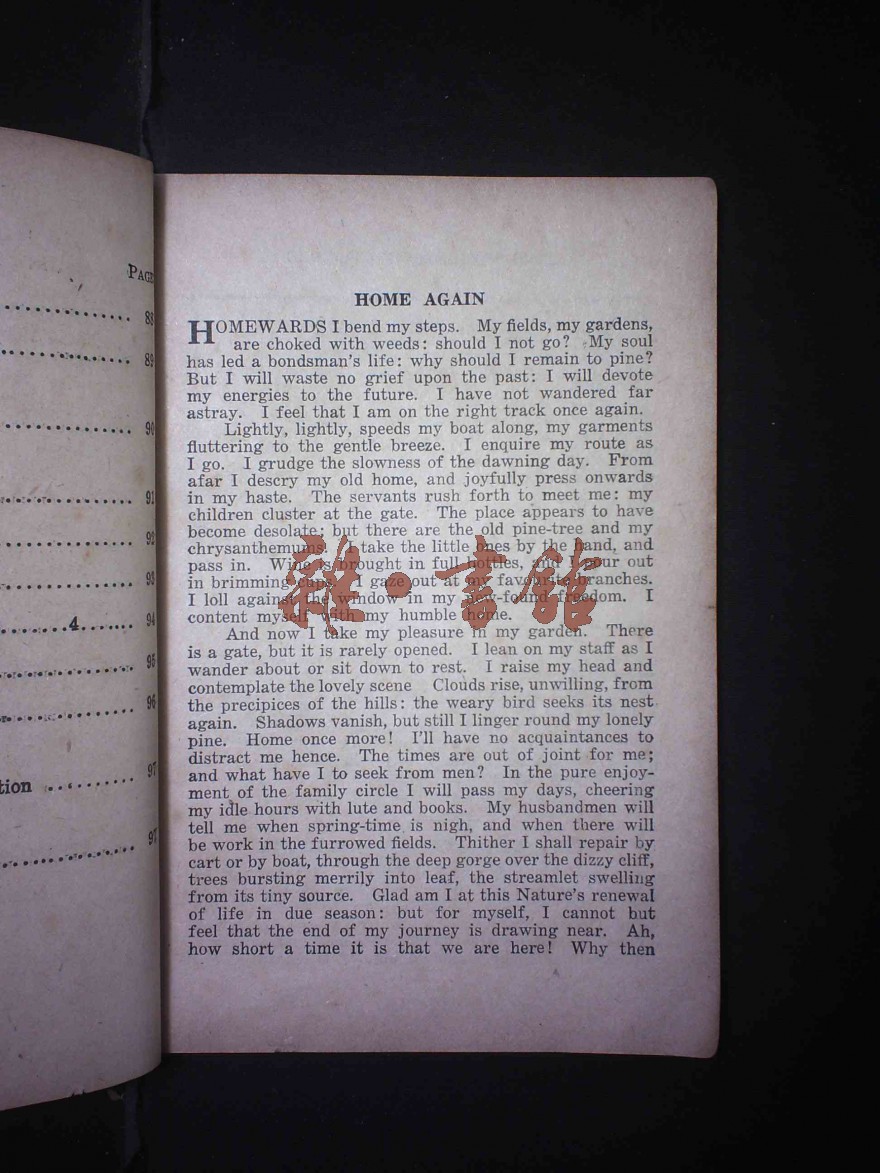 PAGE
88
89
90
91
92
93
4
94
95
96
tion
97
97
HOME AGAIN
HOMEWARDS I bend my steps. My fields, my gardens,
are choked with weeds: should I not go? My soul
has led a bondsman's life: why should I remain to pine?
But I will waste no grief upon the past: I will devote
my energies to the future. I have not wandered far
astray. I feel that I am on the right track once again.
Lightly, lightly, speeds my boat along, my garments
fluttering to the gentle breeze. I enquire my route as
I go. I grudge the slowness of the dawning day. From
afar I descry my old home, and joyfully press onwards
in my haste. The servants rush forth to meet me: my
children cluster at the gate. The place appears to have
become desolate; but there are the old pine-tree and my
chrysanthemums. I take the little ones by the hand, and
pass in. Wine is brought in full bottles, and I pour out
in brimming cups. I gaze out at my favourite branches.
I loll against the window in my new-found freedom. I
content myself with my humble home.
And now I take my pleasure in my garden. There
is a gate, but it is rarely opened. I lean on my staff as I
wander about or sit down to rest. I raise my head and
contemplate the lovely scene Clouds rise, unwilling, from
the precipices of the hills: the weary bird seeks its nest
again. Shadows vanish, but still I linger round my lonely
pine. Home once more! I'll have no acquaintances to
distract me hence. The times are out of joint for me;
and what have I to seek from men? In the pure enjoy-
ment of the family circle I will pass my days, cheering
my idle hours with lute and books. My husbandmen will
tell me when spring-time is nigh, and when there will
be work in the furrowed fields. Thither I shall repair by
cart or by boat, through the deep gorge over the dizzy cliff,
trees bursting merrily into leaf, the streamlet swelling
from its tiny source. Glad am I at this Nature's renewal
of life in due season: but for myself, I cannot but
feel that the end of my journey is drawing near. Ah,
how short a time it is that we are here! Why then
雜·書館